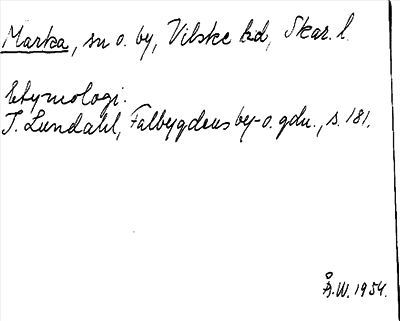 Marka, sn o. by, Vilske hd, Skar. l.
Etymologi.
I. Lundahl, Falbygdens by- o. gdn., s. 181.
Å.W. 1954.